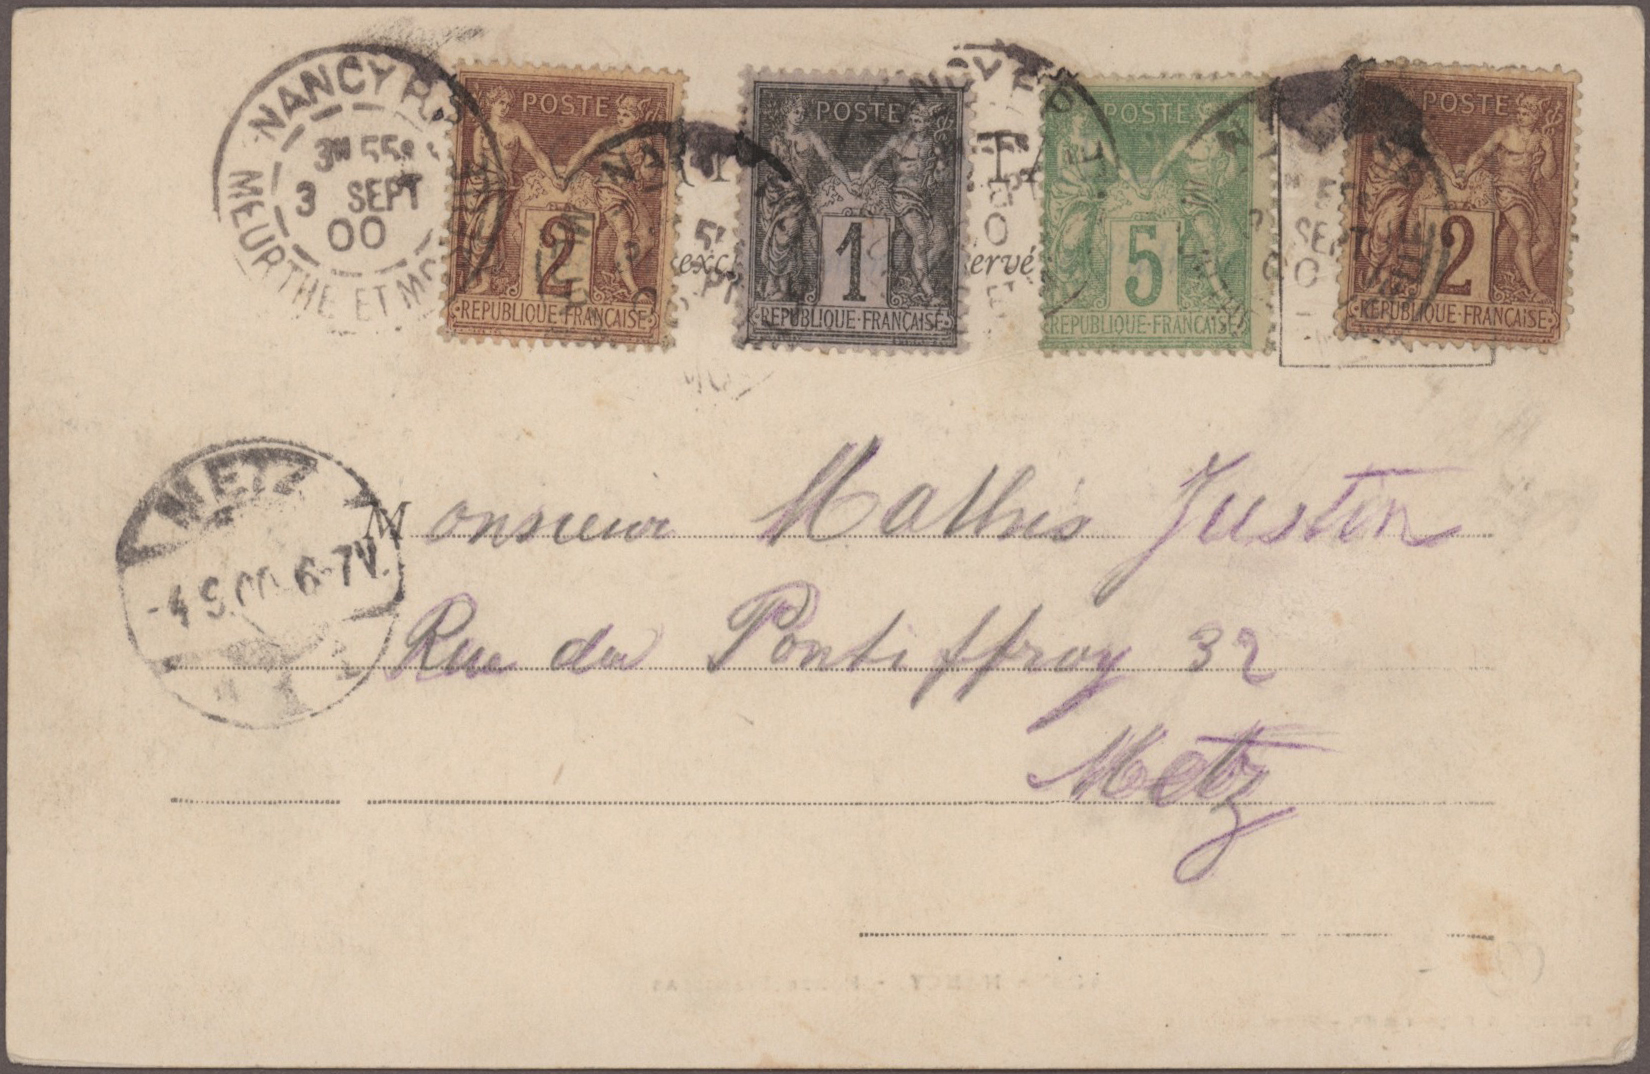 NANCY
3 SEPT
00
MEURTHE ET
POSTE
2
REPUBLIQUE·FRANÇAISE
POSTE
1
REPUBLIQUE·FRANÇAISE
POSTE
5
REPUBLIQUE·FRANÇAISE
POSTE
2
REPUBLIQUE·FRANÇAISE
METZ
-4.9.00.6-7V.
1
Monsieur Mathis Justin
Rue du Pontiffroy 32
Metz